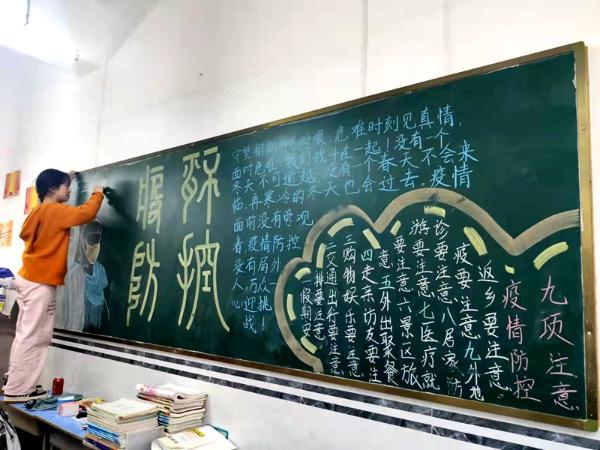 防控
守望相助 时艰，危难时刻见真情，
面对危难，我们战斗在一起！没有一个
冬天不可逾越，没有一个春天不会来
临，再寒冷的冬天也会过去，疫情
面前没有旁观
者，疫情防控
没有局外
人，万众一
心，迎战
九项注意
疫情防控
一假期安
排要注意
二交通出行要注意
三购物娱乐要注意
四走亲访友要注
意，五外出聚餐
要注意，六景区旅
游要注意，七医疗就
诊要注意，八居家防
疫要注意，九外地
返乡要注意